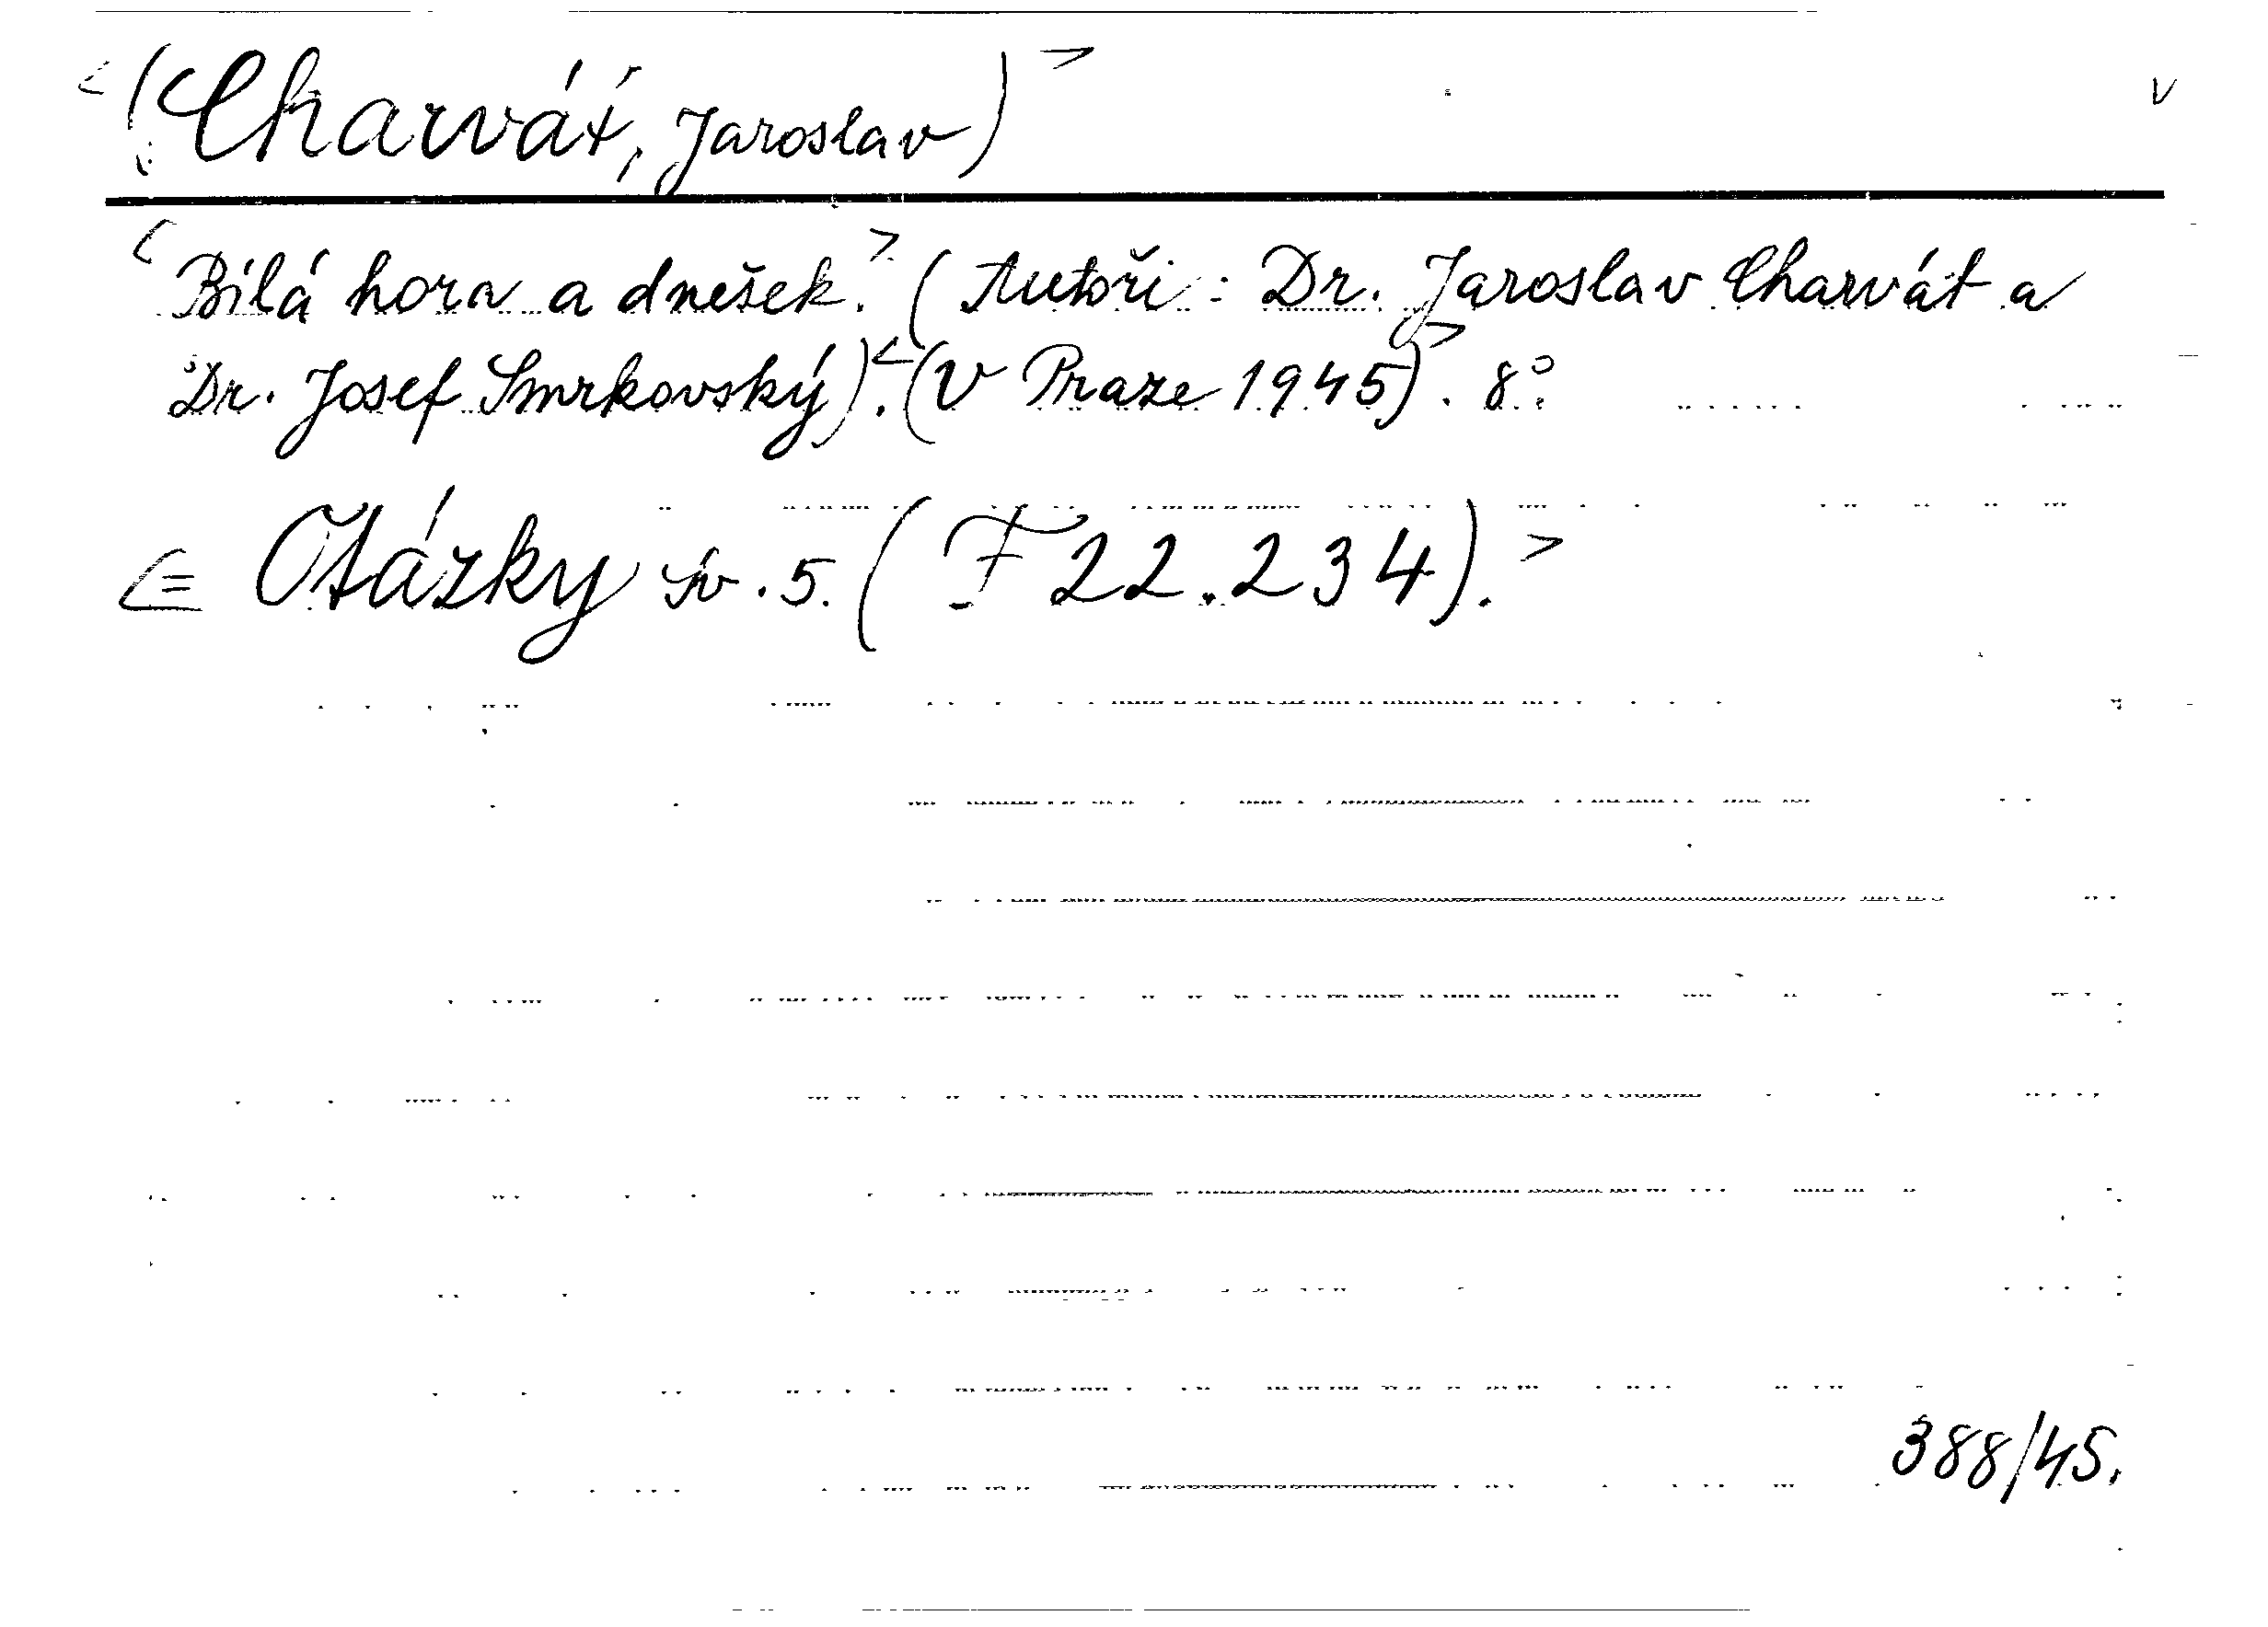 <(Charvát, Jaroslav)> v
<Bílá hora a dnešek.> (Autoři: Dr. Jaroslav Charvát a
Dr. Josef Smrkovský).<(V Praze 1945)>. 8°.
<= Otázky sv. 5. (F 22.234).>
388/45.